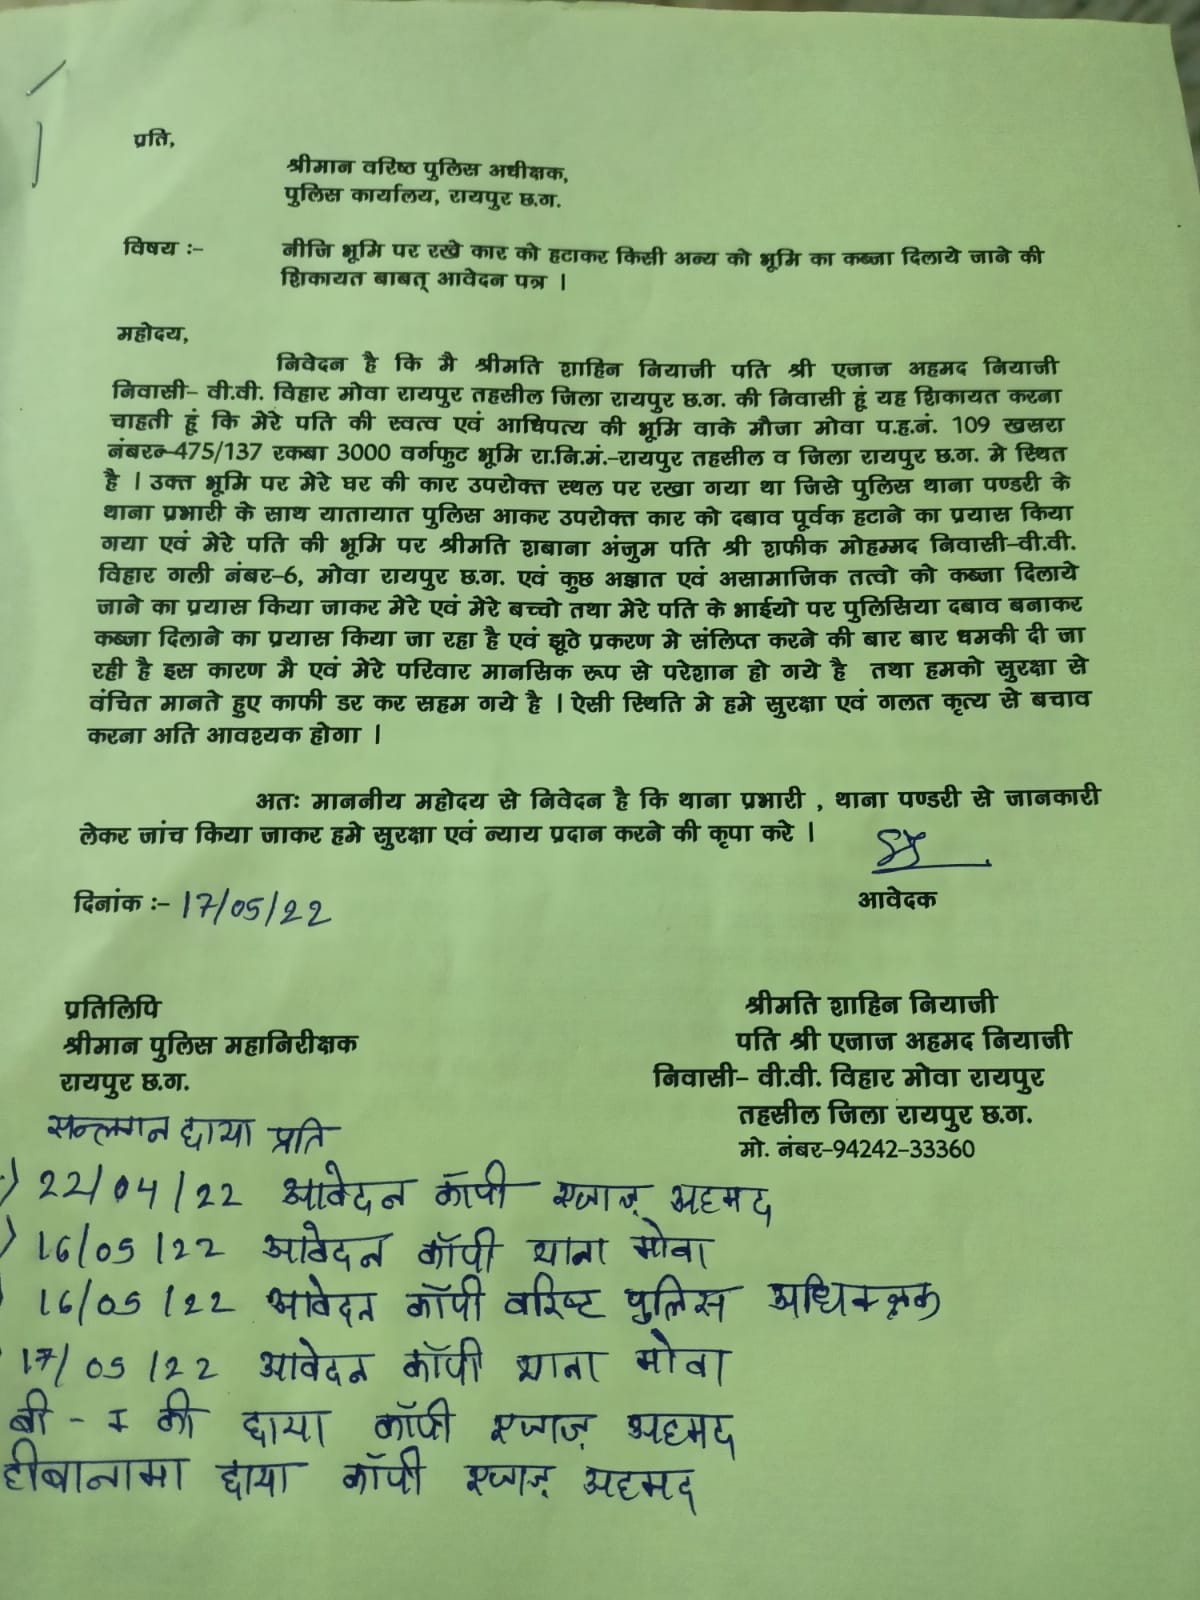 प्रति,
श्रीमान वरिष्ठ पुलिस अधीक्षक,
पुलिस कार्यालय, रायपुर छ.ग.
विषय :- नीजि भूमि पर रखे कार को हटाकर किसी अन्य को भूमि का कब्जा दिलाये जाने की
शिकायत बाबत् आवेदन पत्र ।
महोदय,
निवेदन है कि मै श्रीमति शाहिन नियाजी पति श्री एजाज अहमद नियाजी
निवासी- वी.वी. विहार मोवा रायपुर तहसील जिला रायपुर छ.ग. की निवासी हूं यह शिकायत करना
चाहती हूं कि मेरे पति की स्वत्व एवं आधिपत्य की भूमि वाके मौजा मोवा प.ह.नं. 109 खसरा
नंबरन-475/137 रकबा 3000 वर्गफुट भूमि रा.नि.मं.-रायपुर तहसील व जिला रायपुर छ.ग. मे स्थित
है । उक्त भूमि पर मेरे घर की कार उपरोक्त स्थल पर रखा गया था जिसे पुलिस थाना पण्डरी के
थाना प्रभारी के साथ यातायात पुलिस आकर उपरोक्त कार को दबाव पूर्वक हटाने का प्रयास किया
गया एवं मेरे पति की भूमि पर श्रीमति शबाना अंजुम पति श्री शफीक मोहम्मद निवासी-वी.वी.
विहार गली नंबर-6, मोवा रायपुर छ.ग. एवं कुछ अज्ञात एवं असामाजिक तत्वो को कब्जा दिलाये
जाने का प्रयास किया जाकर मेरे एवं मेरे बच्चो तथा मेरे पति के भाईयो पर पुलिसिया दबाव बनाकर
कब्जा दिलाने का प्रयास किया जा रहा है एवं झूठे प्रकरण मे संलिप्त करने की बार बार धमकी दी जा
रही है इस कारण मै एवं मेरे परिवार मानसिक रूप से परेशान हो गये है तथा हमको सुरक्षा से
वंचित मानते हुए काफी डर कर सहम गये है । ऐसी स्थिति मे हमे सुरक्षा एवं गलत कृत्य से बचाव
करना अति आवश्यक होगा ।
अतः माननीय महोदय से निवेदन है कि थाना प्रभारी , थाना पण्डरी से जानकारी
लेकर जांच किया जाकर हमे सुरक्षा एवं न्याय प्रदान करने की कृपा करे ।
दिनांक :- 17/05/22
आवेदक
प्रतिलिपि
श्रीमान पुलिस महानिरीक्षक
रायपुर छ.ग.
श्रीमति शाहिन नियाजी
पति श्री एजाज अहमद नियाजी
निवासी- वी.वी. विहार मोवा रायपुर
तहसील जिला रायपुर छ.ग.
मो. नंबर-94242-33360
सन्लगन छाया प्रति
22/04/22 आवेदन कॉपी एजाज़ अहमद
16/05/22 आवेदन कॉपी थाना मोवा
16/05/22 आवेदन कॉपी वरिष्ट पुलिस
17/05/22 आवेदन कॉपी थाना मोवा
बी - I की छाया कॉपी एजाज़ अहमद
हीबानामा छाया कॉपी एजाज़ अहमद